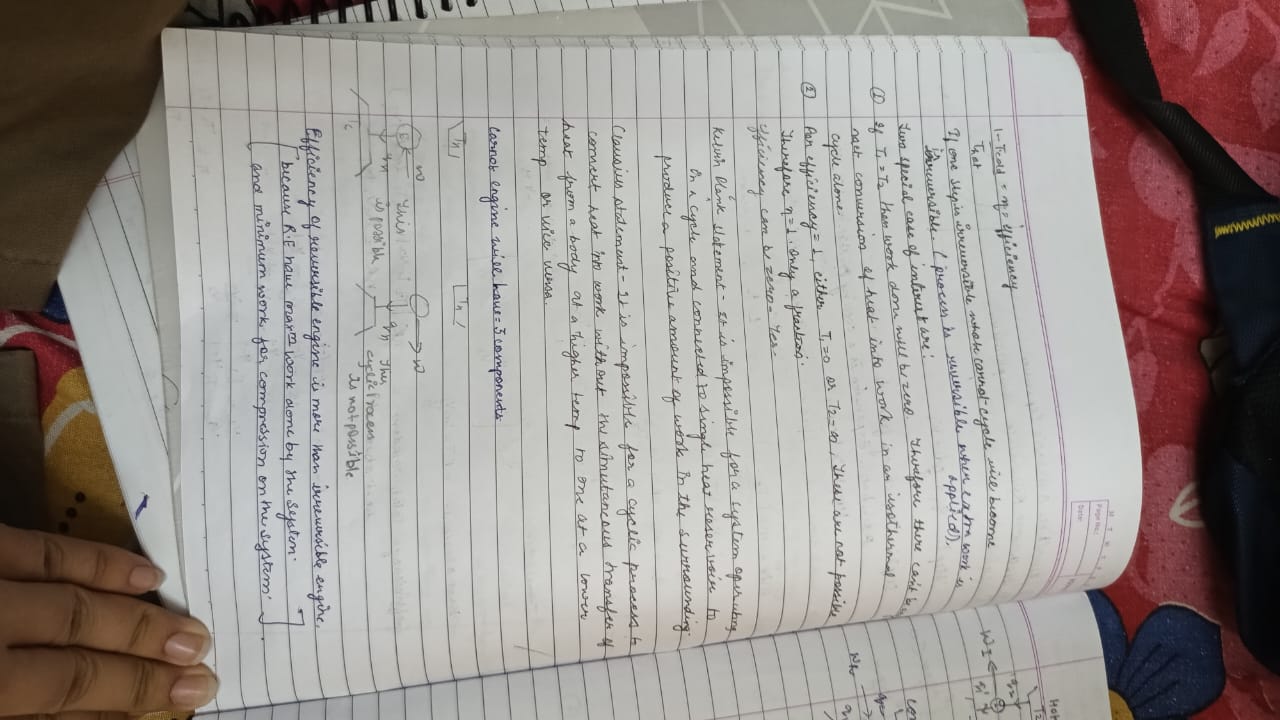 Page No.:
Date:
1 - Tcold = η = efficiency
Thot
If one step is irreversible whole carnot cycle will become
irreversible. (process is reversible when exam work is
applied).
Two special case of interest are:
① If T1 = T2 then work done will be zero. Therefore there can't be
net conversion of heat into work in an isothermal
cycle alone.
② For efficiency = 1, either T1 = 0 or T2 = ∞, This are not possible
Therefore η = 1, only a fraction.
efficiency can be zero - Yes.
Kelvin Plank statement - It is impossible for a system operating
in a cycle and connected to single heat reservoir to
produce a positive amount of work in the surrounding
Clausius statement - It is impossible for a cyclic process to
convert heat into work without the simutaneous transfer of
heat from a body at a higher temp to one at a lower
temp or vice versa.
Carnot engine will have = 3 components
Th Th
w This qh → w
qh is possible This
Tc cyclic process
is not possible
Efficiency of reversible engine is more than irreversible engine.
[because R.E have max m work done by the system.
and minimum work for compression on the system.]
Hot
T2
W